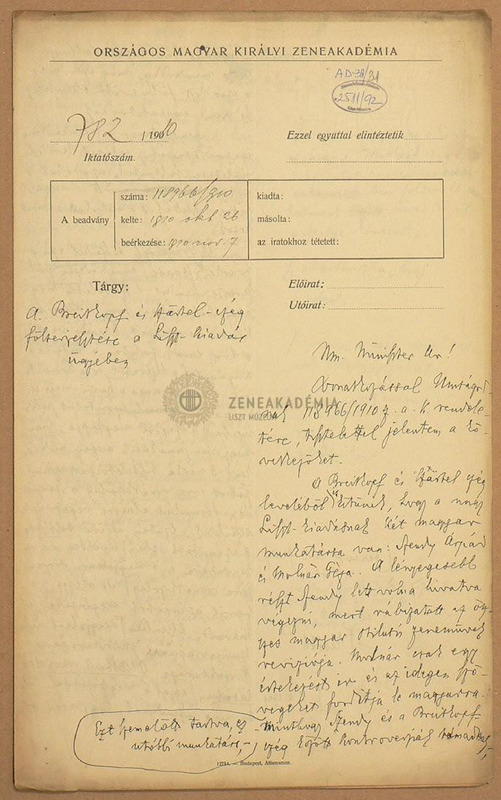 ORSZÁGOS MAGYAR KIRÁLYI ZENEAKADÉMIA
2511/92
782 / 1910
Iktatószám.
Ezzel egyuttal elintéztetik
A beadvány
száma: 118966/910
kelte: 1910 okt 26
beérkezése: 1910 nov. 7
kiadta:
másolta:
az iratokhoz tétetett:
Tárgy:
Előirat:
Utóirat:
A Breitkopf és Härtel-cég
fölterjesztése a Liszt-kiadás
ügyében
Nm. Miniszter Ur!
Vonatkozással Uraságod-
nak 118966/1910 sz. a. k. rendele-
tére, tisztelettel jelentem a kö-
vetkezőket.
A Breitkopf és Härtel cég
leveléből kitünik, hogy a nagy
Liszt-kiadásnak két magyar
munkatársa van: Szendy Árpád
és Molnár Géza. A lényegesebb
részt Szendy lett volna hivatva
végezni, mert rábizatott az ösz-
szes magyar stilusú zeneművek
revíziója. Molnár csak egy
értekezést ir és az idegen szö-
vegeket fordítja le magyarra.
Minthogy Szendy és a Breitkopf
cég között kontroverziák támadtak,
Ezt szem előtt tartva, az
utóbbi munkatárs,
ZENEAKADÉMIA
LISZT MÚZEUM
Budapest, Athenaeum.